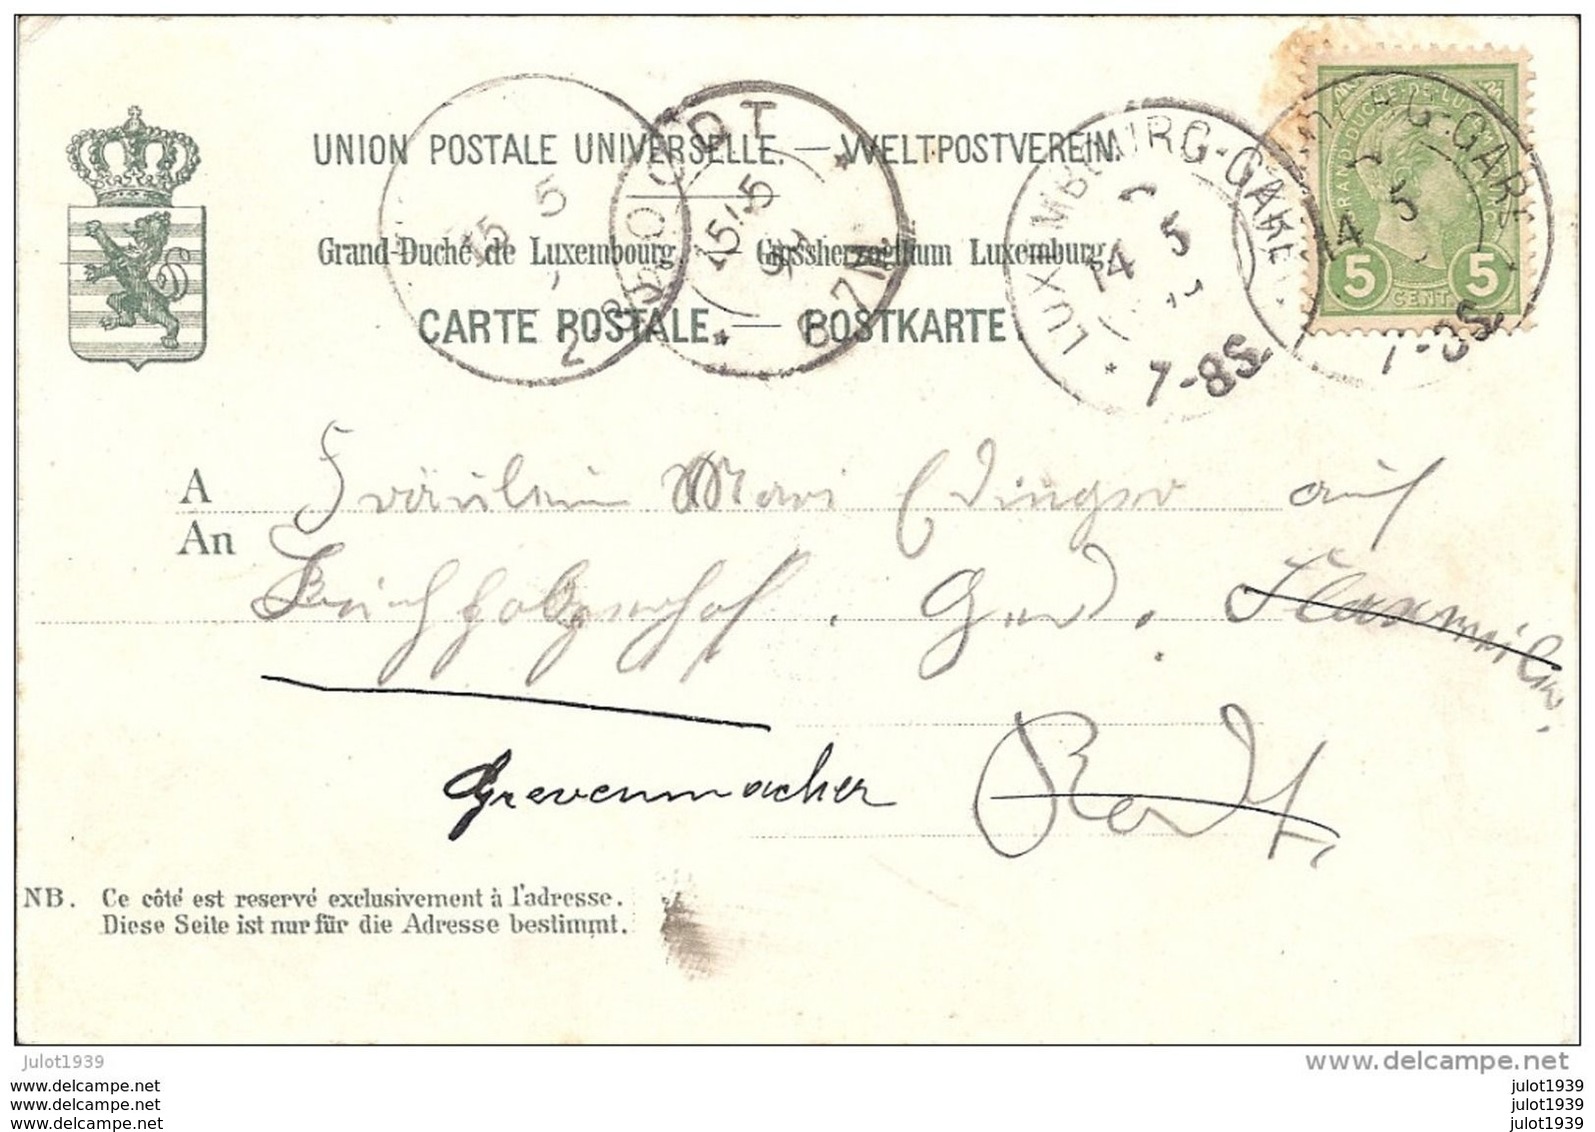 UNION POSTALE UNIVERSELLE. — WELTPOSTVEREIN.
Grand-Duché de Luxembourg. — Grossherzogthum Luxemburg.
CARTE POSTALE. — POSTKARTE.
LUXEMBOURG-GARE
14 5
7-8S.
GRAND-DUCHÉ-DE-LUXEMBOURG
5 CENT. 5
15 5
A Fräulein Mari Edinger auf
An
Gred.
Grevenmacher
NB. Ce côté est reservé exclusivement à l'adresse.
Diese Seite ist nur für die Adresse bestimmt.
julot1939
www.delcampe.net
www.delcampe.net
www.delcampe.net
www.delcampe.net
julot1939
julot1939
julot1939